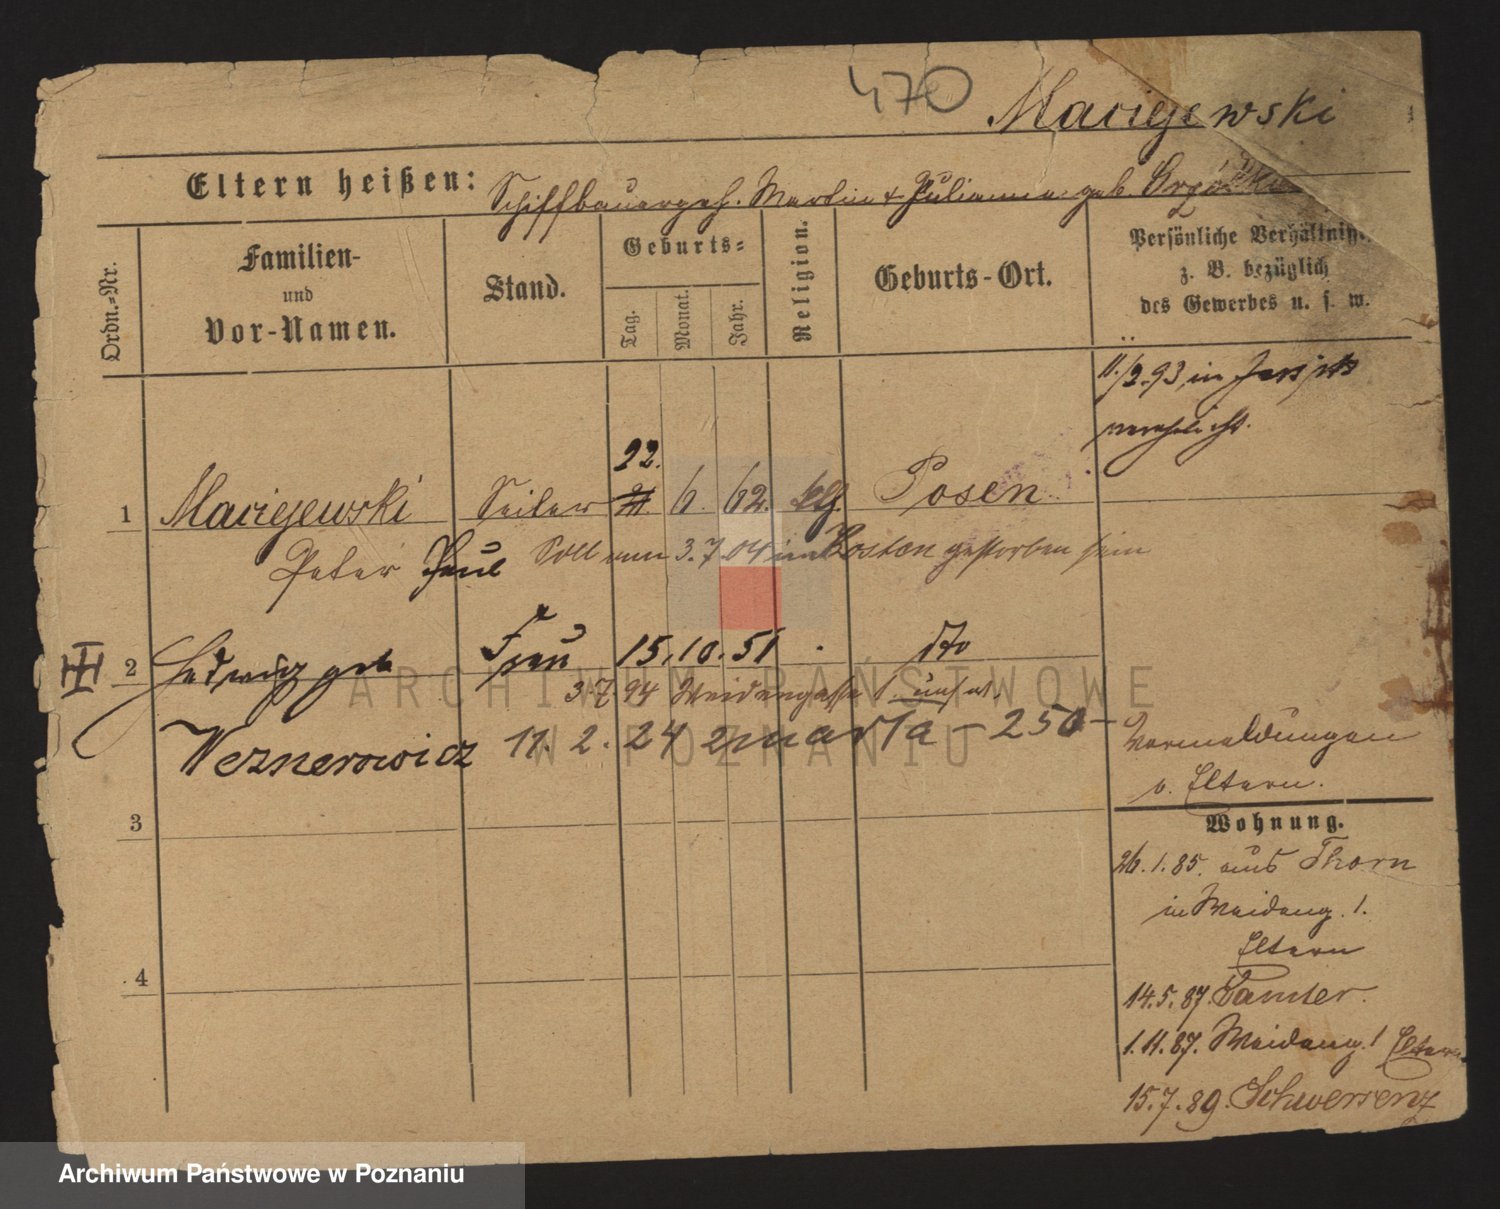 470
Maciejewski
Eltern heißen: Schiffbauergeh. Martin & Julianna geb.
Ordn.=Nr.
Familien-
und
Vor-Namen.
Stand.
Geburts=
Tag.
Monat.
Jahr.
Religion.
Geburts-Ort.
Persönliche Verhältnisse
z. B. bezüglich
des Gewerbes u. s. w.
11./2.93 in
verehelicht.
22.
1 Maciejewski Seiler 21. 6. 62. Posen
Peter Paul Soll am 3.7.04 in Boston gestorben sein
III
2 Hedwig geb Frau 15. 10. 51 dto
3.7.94 Weidengasse 1
Weznerowicz 11. 2. 24 zmarła - 250 -
Vormeldungen
b. Eltern.
Wohnung.
3
26.1.85. aus Thorn
in Weideng. 1.
Eltern
4
14.5.87. Samter.
1.11.87. Weideng. 1 Eltern
15.7.89. Schwersenz
ARCHIWUM PAŃSTWOWE
W POZNANIU
Archiwum Państwowe w Poznaniu